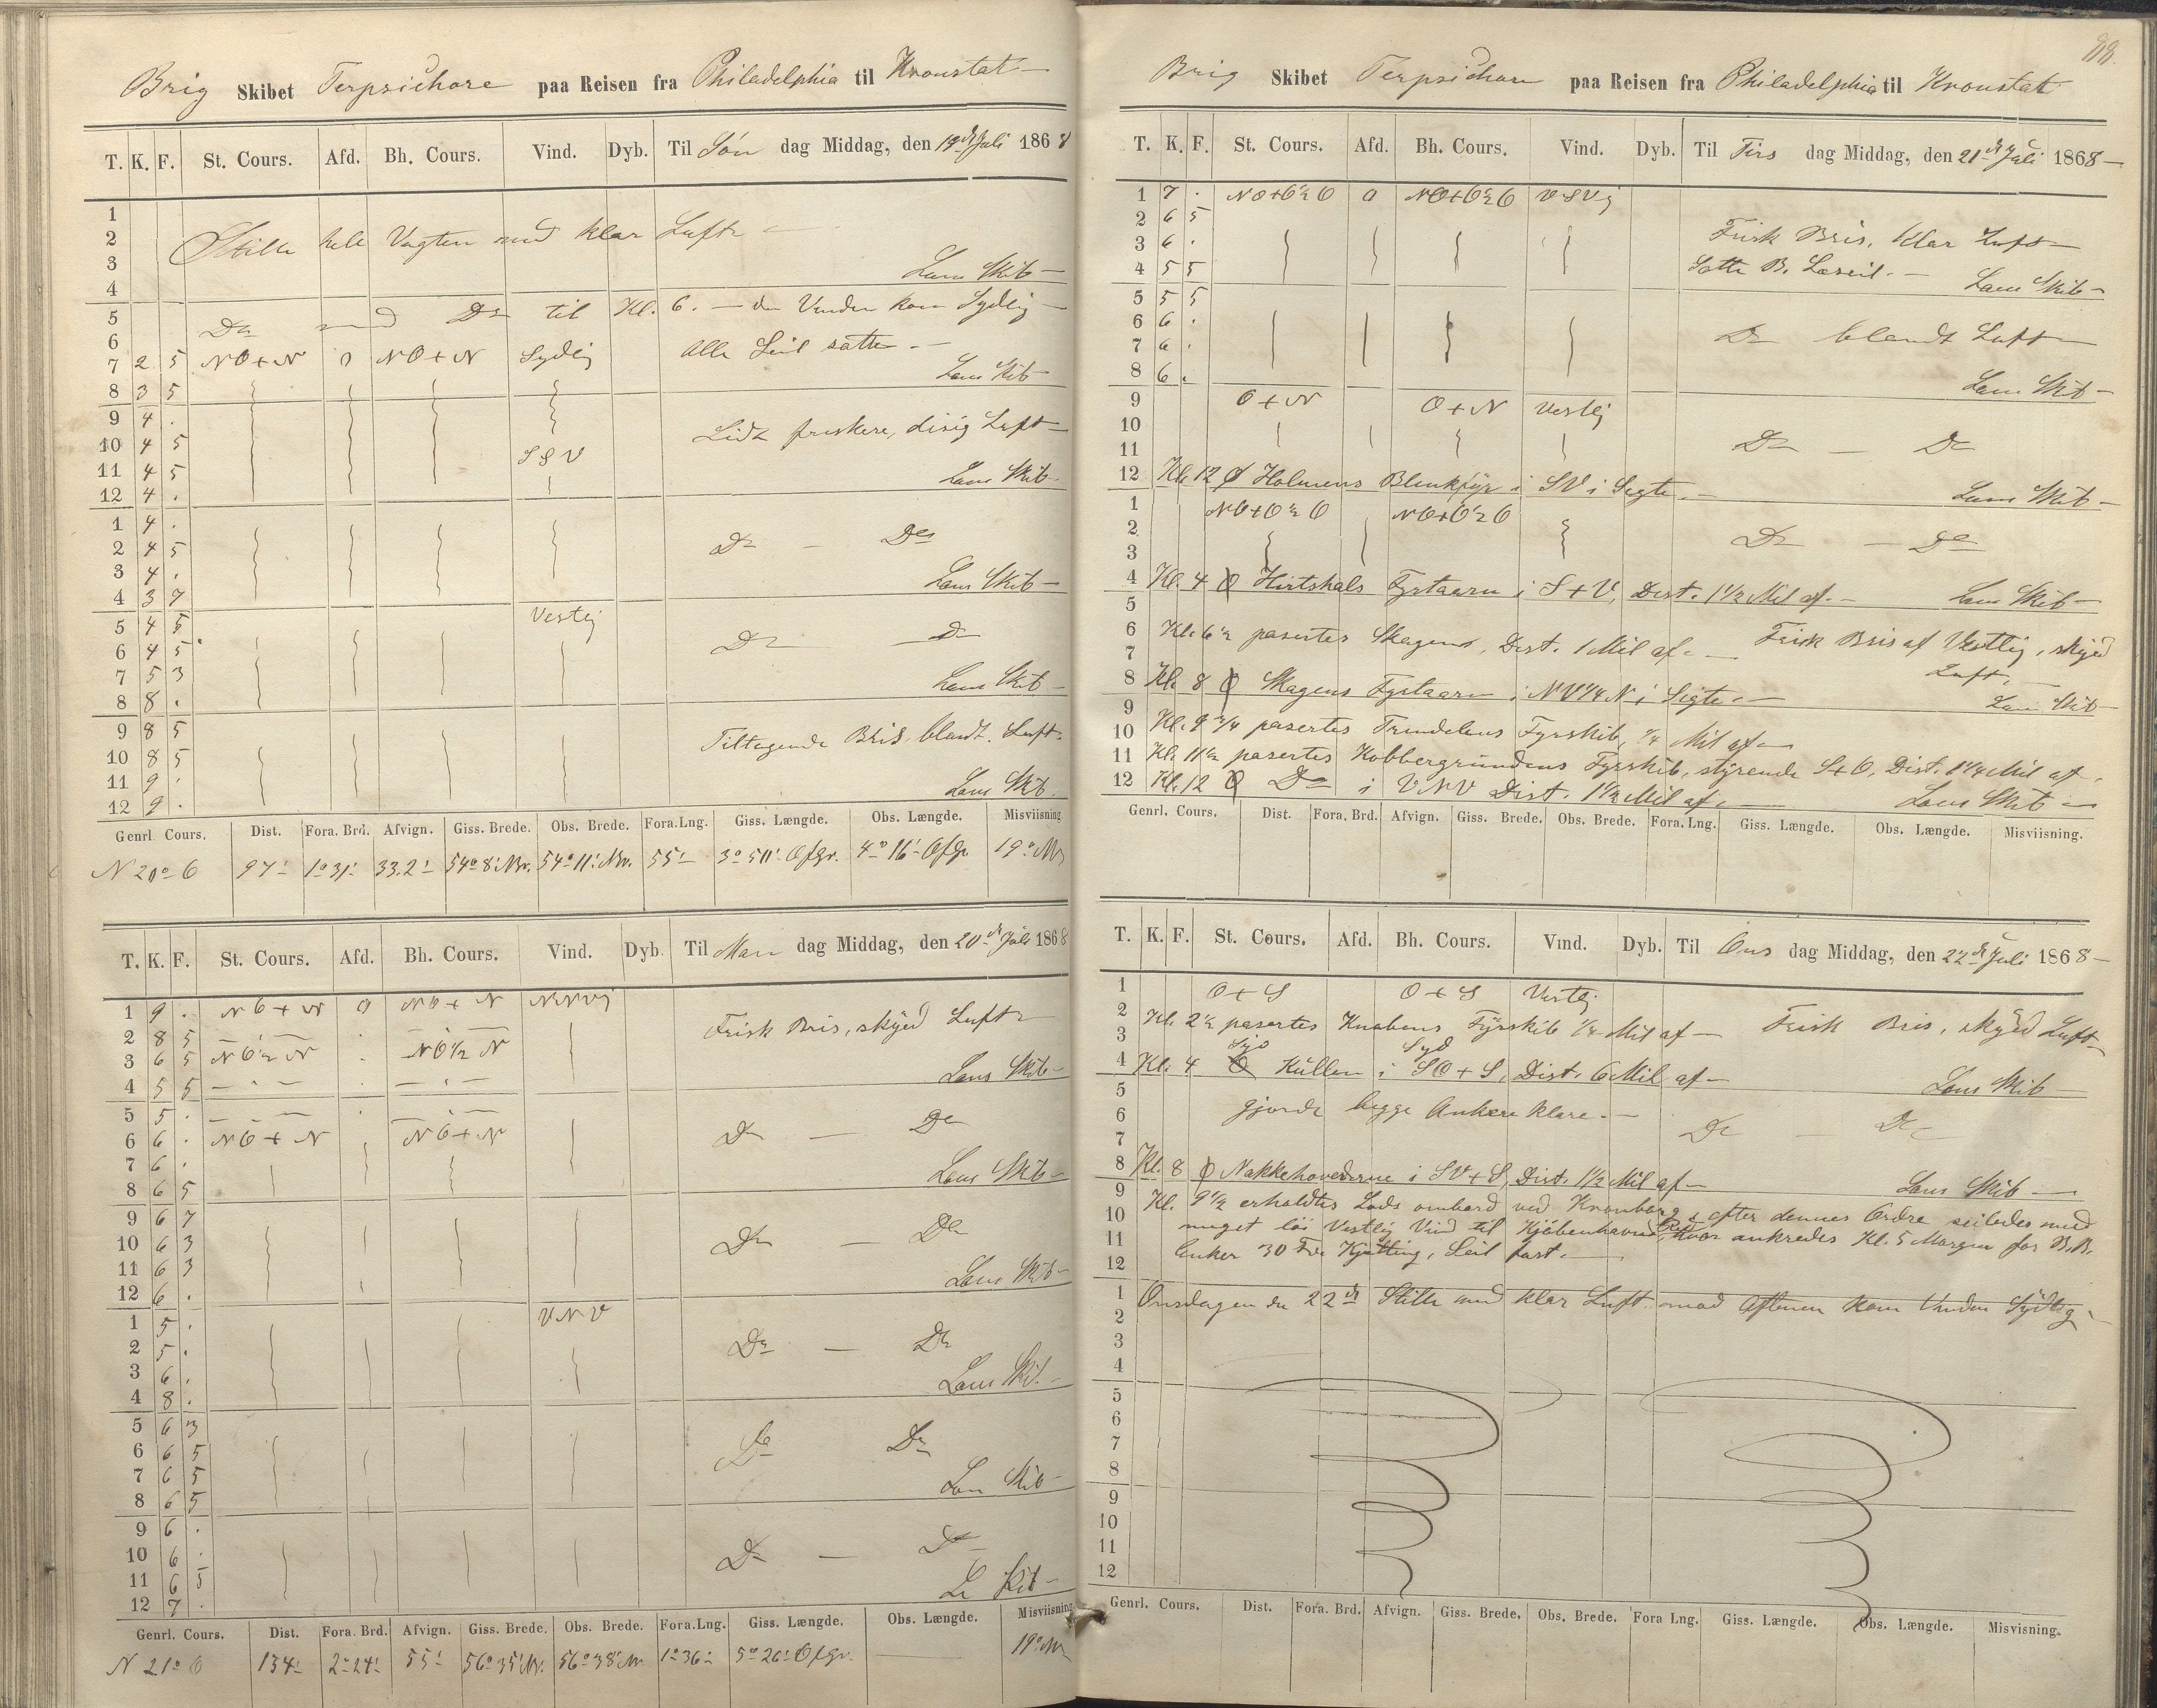 Brig Skibet Terpsichore paa Reisen fra Philadelphia til Kronstat
T. K. F. St. Cours. Afd. Bh. Cours. Vind. Dyb. Til Søn dag Middag, den 19de Juli 1868
1
2 Stille hele Vagten med klar Luft
3 Læns Skib
4
5 Do med Do til Kl. 6. — da Vinden kom Sydlig
6
7 2 5 NO+N 0 NO+N Sydlig Alle Seil satte.
8 3 5 Læns Skib
9 4 .
10 4 5 Lidt friskere, disig Luft
11 4 5 SSV Læns Skib
12 4 .
1 4 .
2 4 5 Do — Do
3 4 . Læns Skib
4 3 7
5 4 5 Vestlig
6 4 5 Do Do
7 5 3 Læns Skib
8 8 .
9 8 5
10 8 5 Tiltagende Bris, blandt Luft
11 9 . Læns Skib
12 9 .
Genrl. Cours. Dist. Fora. Brd. Afvign. Giss. Brede. Obs. Brede. Fora.Lng. Giss. Længde. Obs. Længde. Misviisning
N 20° O 97' 1°31' 33.2' 54°8' Nr. 54°11' Nr. 55' 3°50' Ofgr. 4°16' Ofgr 19° NV
T. K. F. St. Cours. Afd. Bh. Cours. Vind. Dyb. Til Man dag Middag, den 20de Juli 1868
1 9 . NO+N 0 NO+N NNVlig
2 8 5 Frisk Bris, skyed Luft
3 6 5 NO½N . NO½N
4 5 5 — . — — . — Læns Skib
5 5 .
6 6 . NO+N NO+N Do — Do
7 6 . Læns Skib
8 6 5
9 6 7
10 6 3 Do — Do
11 6 3 Læns Skib
12 6 .
1 5 . VNV
2 5 . Do — Do
3 6 . Læns Skib
4 8 .
5 6 3
6 6 5 Do Do
7 6 5
8 6 5 Læns Skib
9 6 .
10 6 . Do — Do
11 6 5
12 7 .
Genrl. Cours. Dist. Fora. Brd. Afvign. Giss. Brede. Obs. Brede. Fora.Lng. Giss. Længde. Obs. Længde. Misviisning
N 21° O 134' 2°24' 55' 56°35' Nr. 56°38' Nr 1°36' 5°26' Ofgr. 19° NV
88.
Brig Skibet Terpsichore paa Reisen fra Philadelphia til Kronstat
T. K. F. St. Cours. Afd. Bh. Cours. Vind. Dyb. Til Tirs dag Middag, den 21de Juli 1868
1 7 . NO+O½O 0 NO+O½O VSVlig
2 6 5
3 6 . Frisk Bris, Klar Luft
4 5 5 Satte B. Læseil. — Læns Skib
5 5 5
6 6 .
7 6 . Do blandt Luft
8 6 . Læns Skib
9 O+N O+N Vestlig
10
11 Do — Do
12 Kl. 12 Holmens Blinkfyr i SV i Sigte. Læns Skib
1 NO+O½O NO+O½O
2 Do — Do
3
4 Kl. 4 Hirtshals Fyrtaarn i S+V, Dist. 1½ Mil af. Læns Skib
5
6 Kl. 6½ pasertes Skagens, Dist. 1 Mil af. — Frisk Bris af Vestlig, skyed
7 Luft.
8 Kl. 8 Skagens Fyrtaarn i NV¼N i Sigte. Læns Skib
9
10 Kl. 9¾ pasertes Trindelens Fyrskib, ¼ Mil af
11 Kl. 11½ pasertes Kobbergrundens Fyrskib, styrende S+O, Dist. 1¼ Mil af.
12 Kl. 12 Do i VNV Dist. 1½ Mil af. Læns Skib
Genrl. Cours. Dist. Fora. Brd. Afvign. Giss. Brede. Obs. Brede. Fora. Lng. Giss. Længde. Obs. Længde. Misviisning.
T. K. F. St. Cours. Afd. Bh. Cours. Vind. Dyb. Til Ons dag Middag, den 22de Juli 1868
1 O+S O+S Vestlig
2 Kl. 2½ pasertes Knobens Fyrskib ¼ Mil af — Frisk Bris, skyed Luft
3 Syd
4 Kl. 4 Kullen i SO+S, Dist. 6 Mil af — Læns Skib
5
6 gjorde begge Ankere klare. —
7 Do — Do
8 Kl. 8 Nakkehovederne i SV+S, Dist. 1½ Mil af — Læns Skib
9 Kl. 9½ erholdtes Lods ombord ved Kronborg & efter dennes Ordre seiledes med
10 meget løi Vestlig Vind til Kjøbenhavns Red, hvor ankredes Kl. 5 Morgen for B.B.
11 Anker 30 Fv. Kjætting, Seil fast. —
12
1 Onsdagen den 22de Stille med klar Luft mod Aftenen kom Vinden Sydlig
2
3
4
5
6
7
8
9
10
11
12
Genrl. Cours. Dist. Fora. Brd. Afvign. Giss. Brede. Obs. Brede. Fora Lng. Giss. Længde. Obs. Længde. Misvisning.